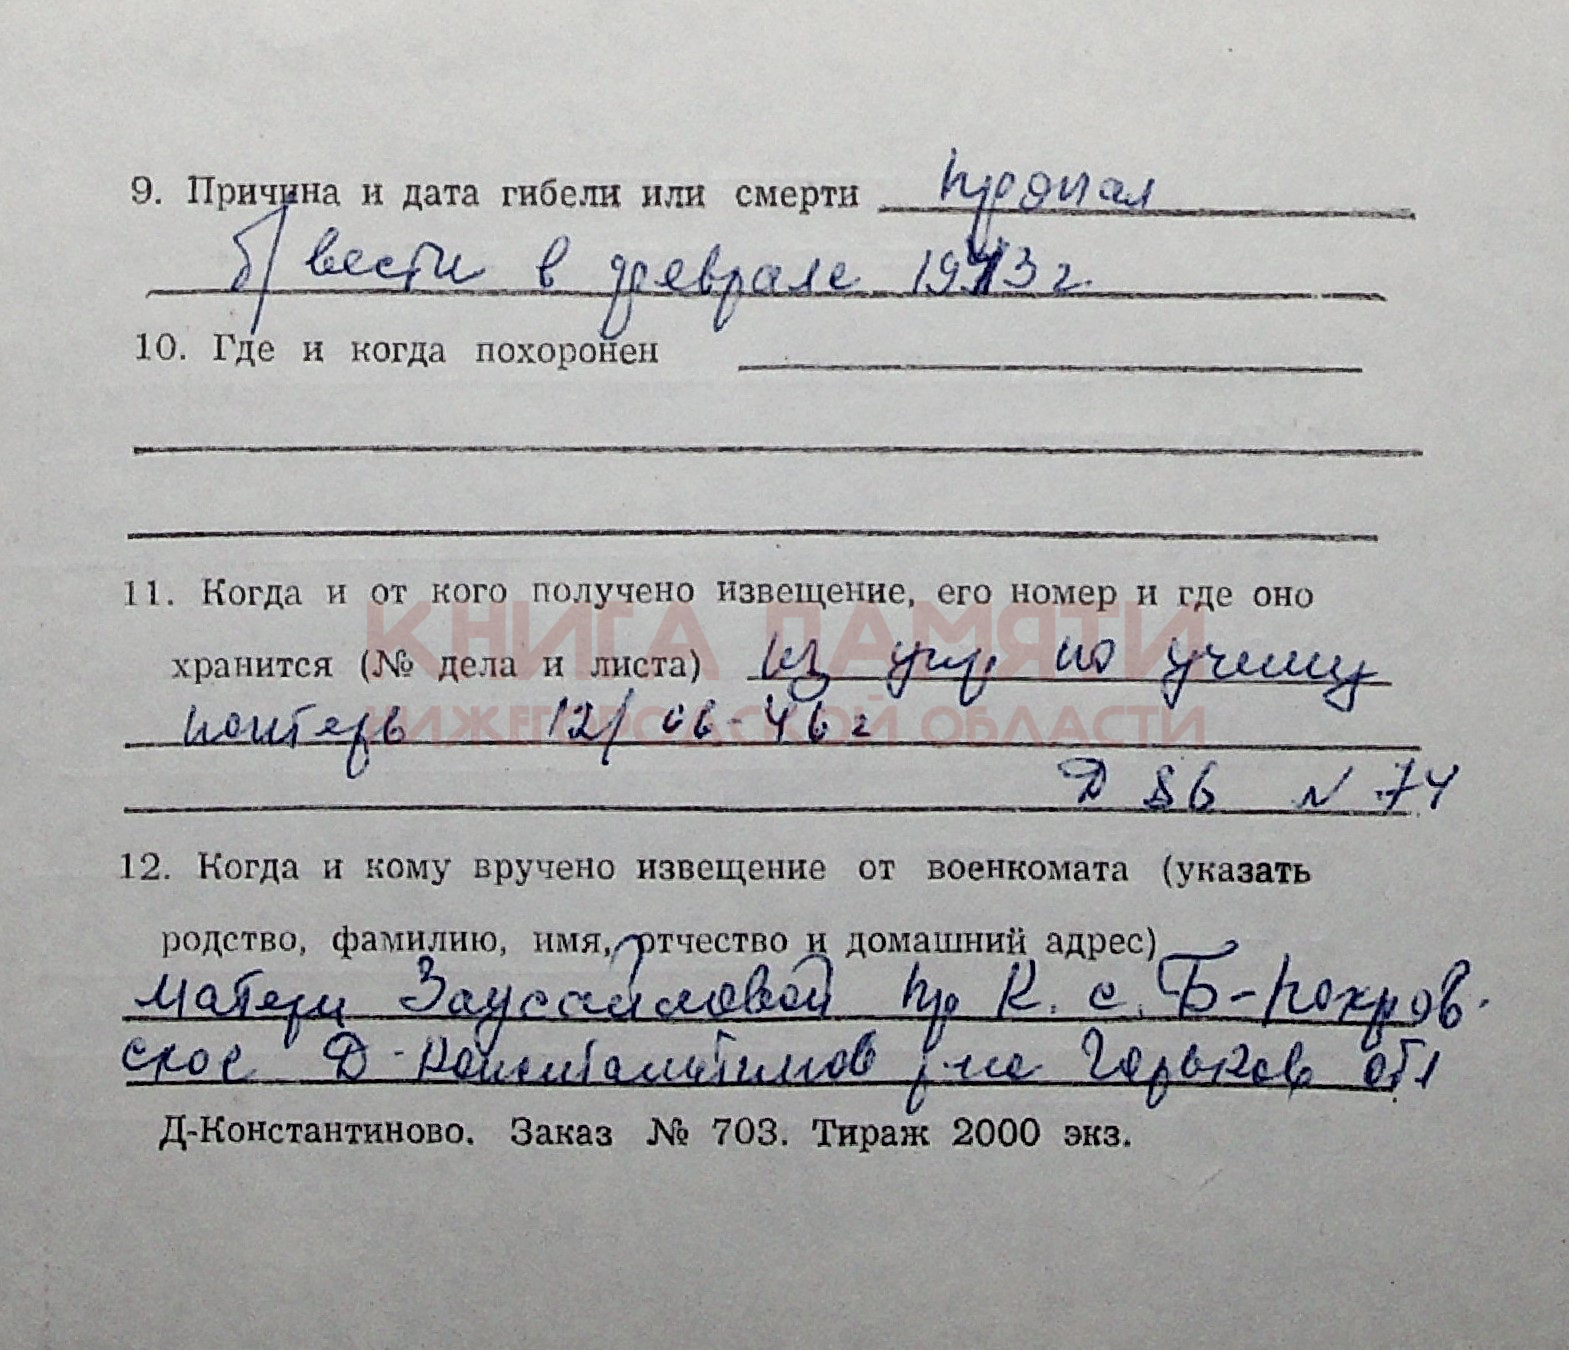 9. Причина и дата гибели или смерти пропал
б/вести в феврале 1943 г.
10. Где и когда похоронен
11. Когда и от кого получено извещение, его номер и где оно
КНИГА ПАМЯТИ
хранится (№ дела и листа) из упр. по учету
потерь 12/06-46 г
НИЖЕГОРОДСКОЙ ОБЛАСТИ
Д 86 N 74
12. Когда и кому вручено извещение от военкомата (указать
родство, фамилию, имя, отчество и домашний адрес)
матери Заусайловой пр К. с. Б-Покров-
ское Д-Константинов р-на Горьков обл
Д-Константиново. Заказ № 703. Тираж 2000 экз.